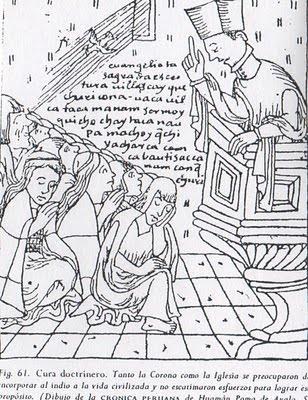 euangelio ta
sagrada esce
tura uillascayque
churicona - uaca uil
ca tacamanam sermoy
quicho chaytaca nau
pa machoyqchi
yacharca cam
ca bautisacca
nam canq
churi
Fig. 61. Cura doctrinero. Tanto la Corona como la Iglesia se preocuparon d
incorporar al indio a la vida civilizada y no escatimaron esfuerzos para lograr es
propósito. (Dibujo de la CRONICA PERUANA de Huamán Poma de Ayala